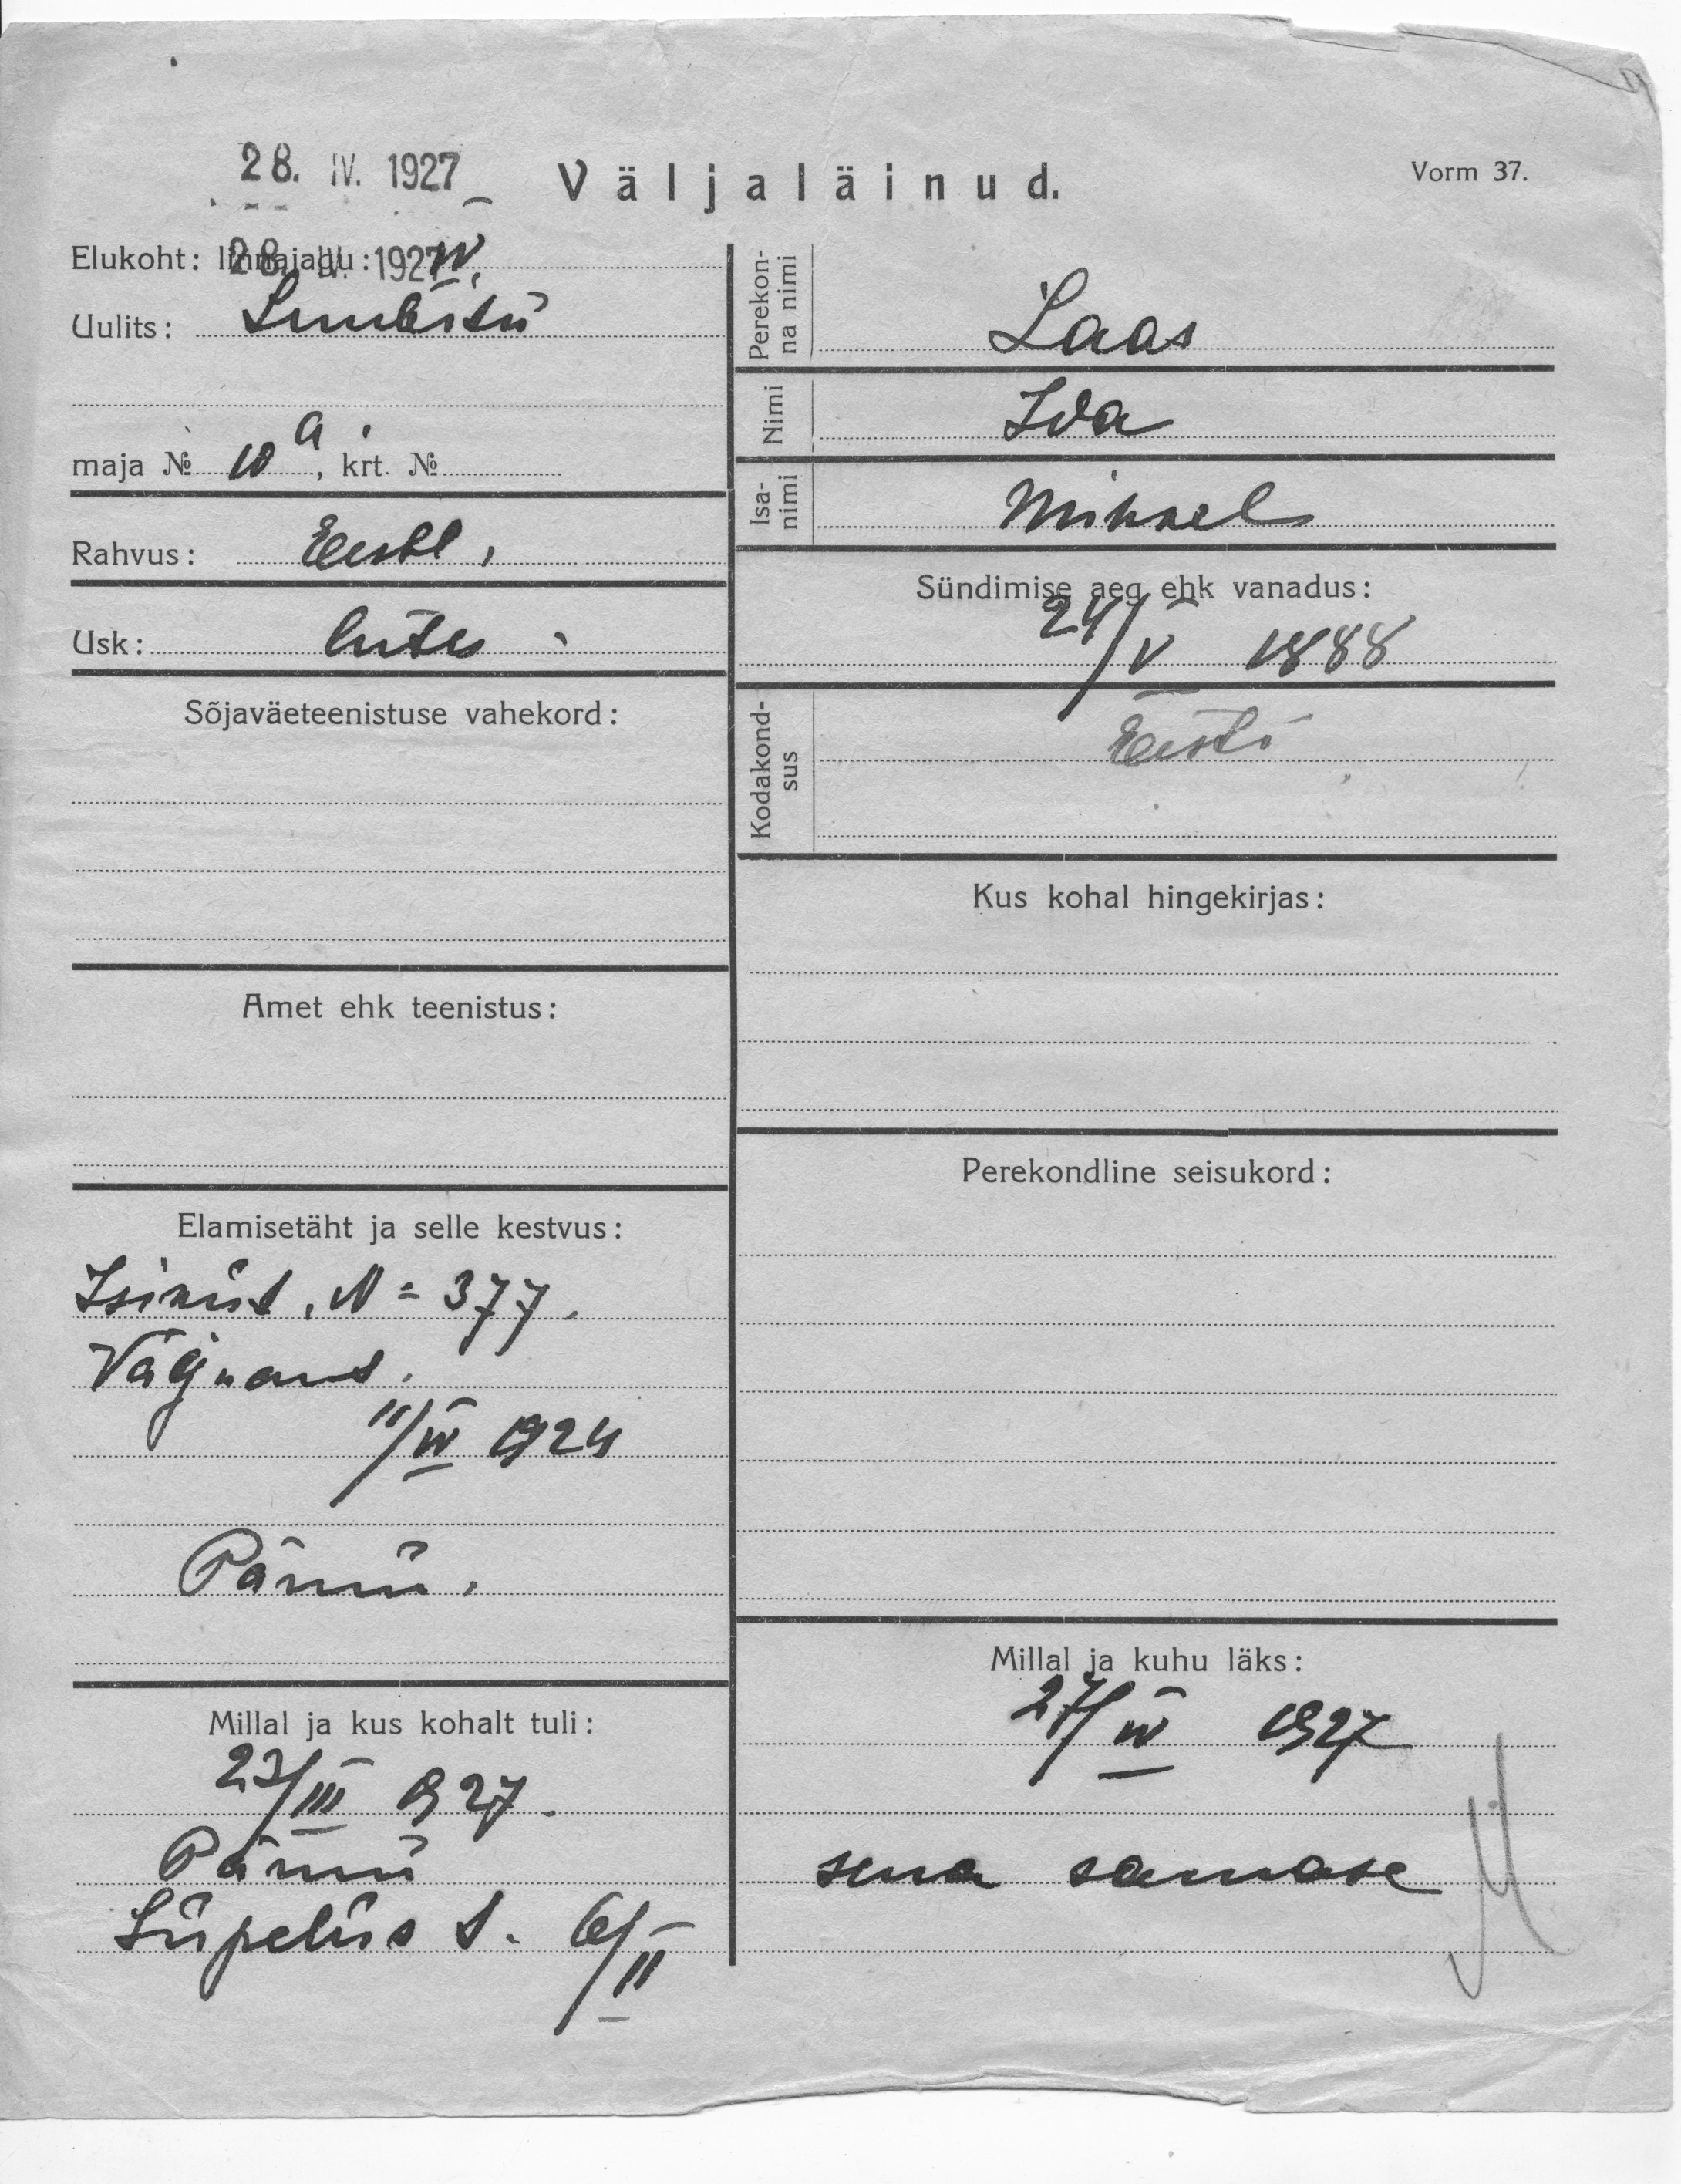 28. IV. 1927
Väljaläinud.
Vorm 37.
Elukoht: linnajagu: IV.
28. IV. 1927
Uulits: Lembitu
maja № 10 a, krt. №
Rahvus: Eestl.
Usk: lutes
Sõjaväeteenistuse vahekord:
Amet ehk teenistus:
Elamisetäht ja selle kestvus:
Isikut. N= 377.
11/IV 1924
Pärnu.
Millal ja kus kohalt tuli:
23/III 927.
Pärnu
t. 6/II
Perekon-
na nimi
Laas
Nimi
Ida
Isa-
nimi
Mihkel
Sündimise aeg ehk vanadus:
24/V 1888
Kodakond-
sus
Eesti
Kus kohal hingekirjas:
Perekondline seisukord:
Millal ja kuhu läks:
27/IV 1927
sena samase